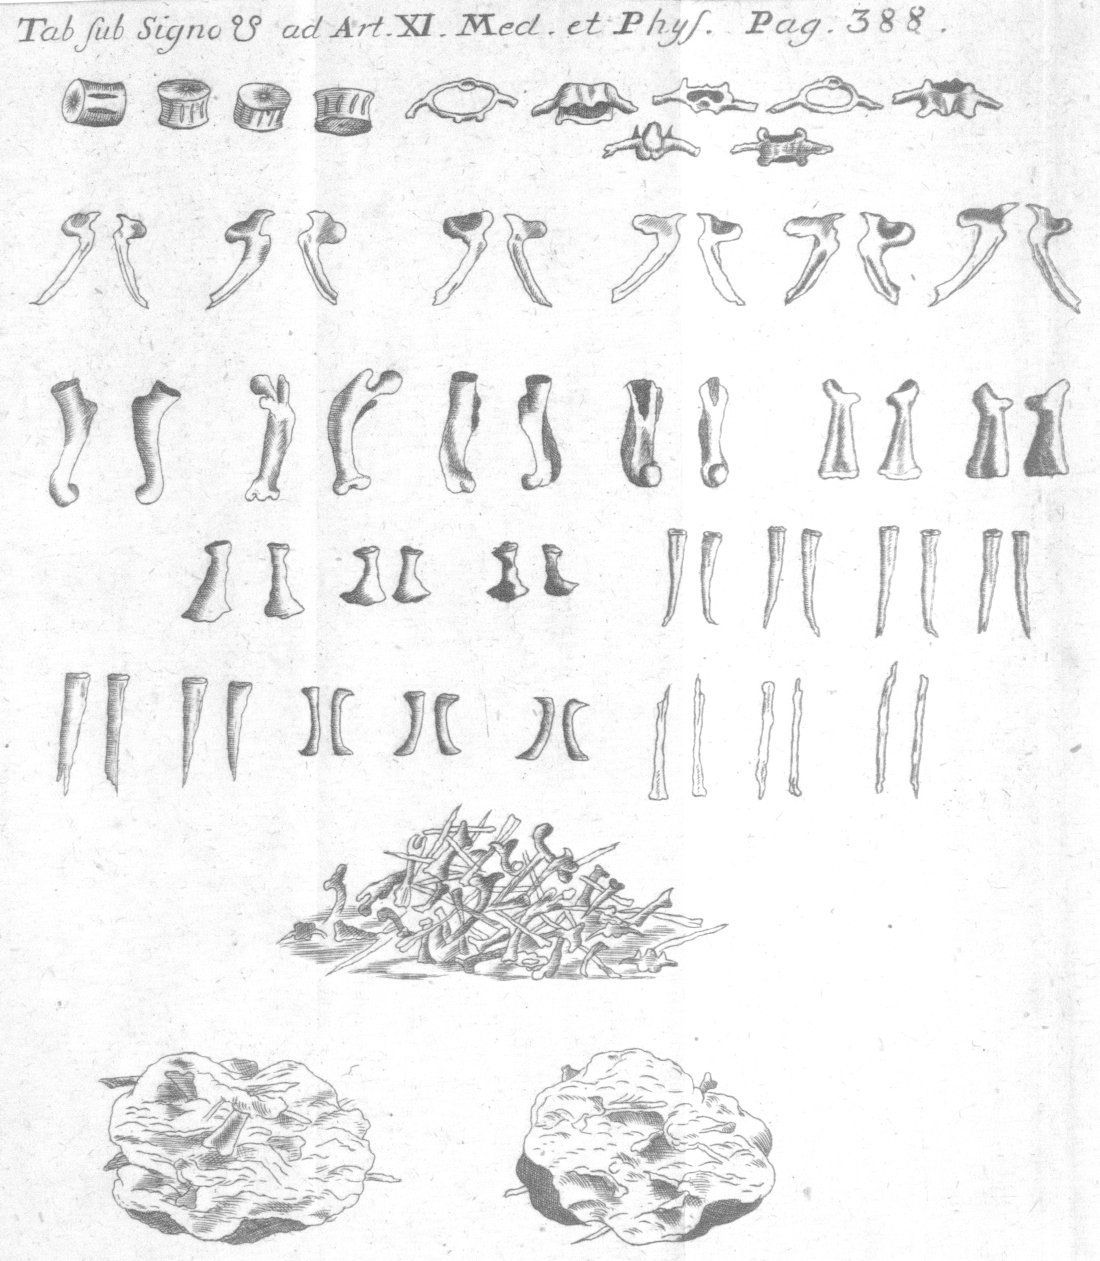 Tab ſub Signo ☋ ad Art. XI. Med. et Phyſ. Pag. 388.